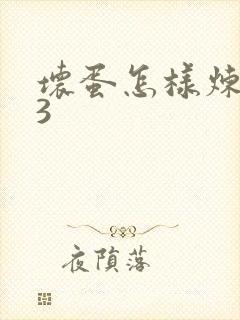 壞蛋怎樣煉
3
夜隕落